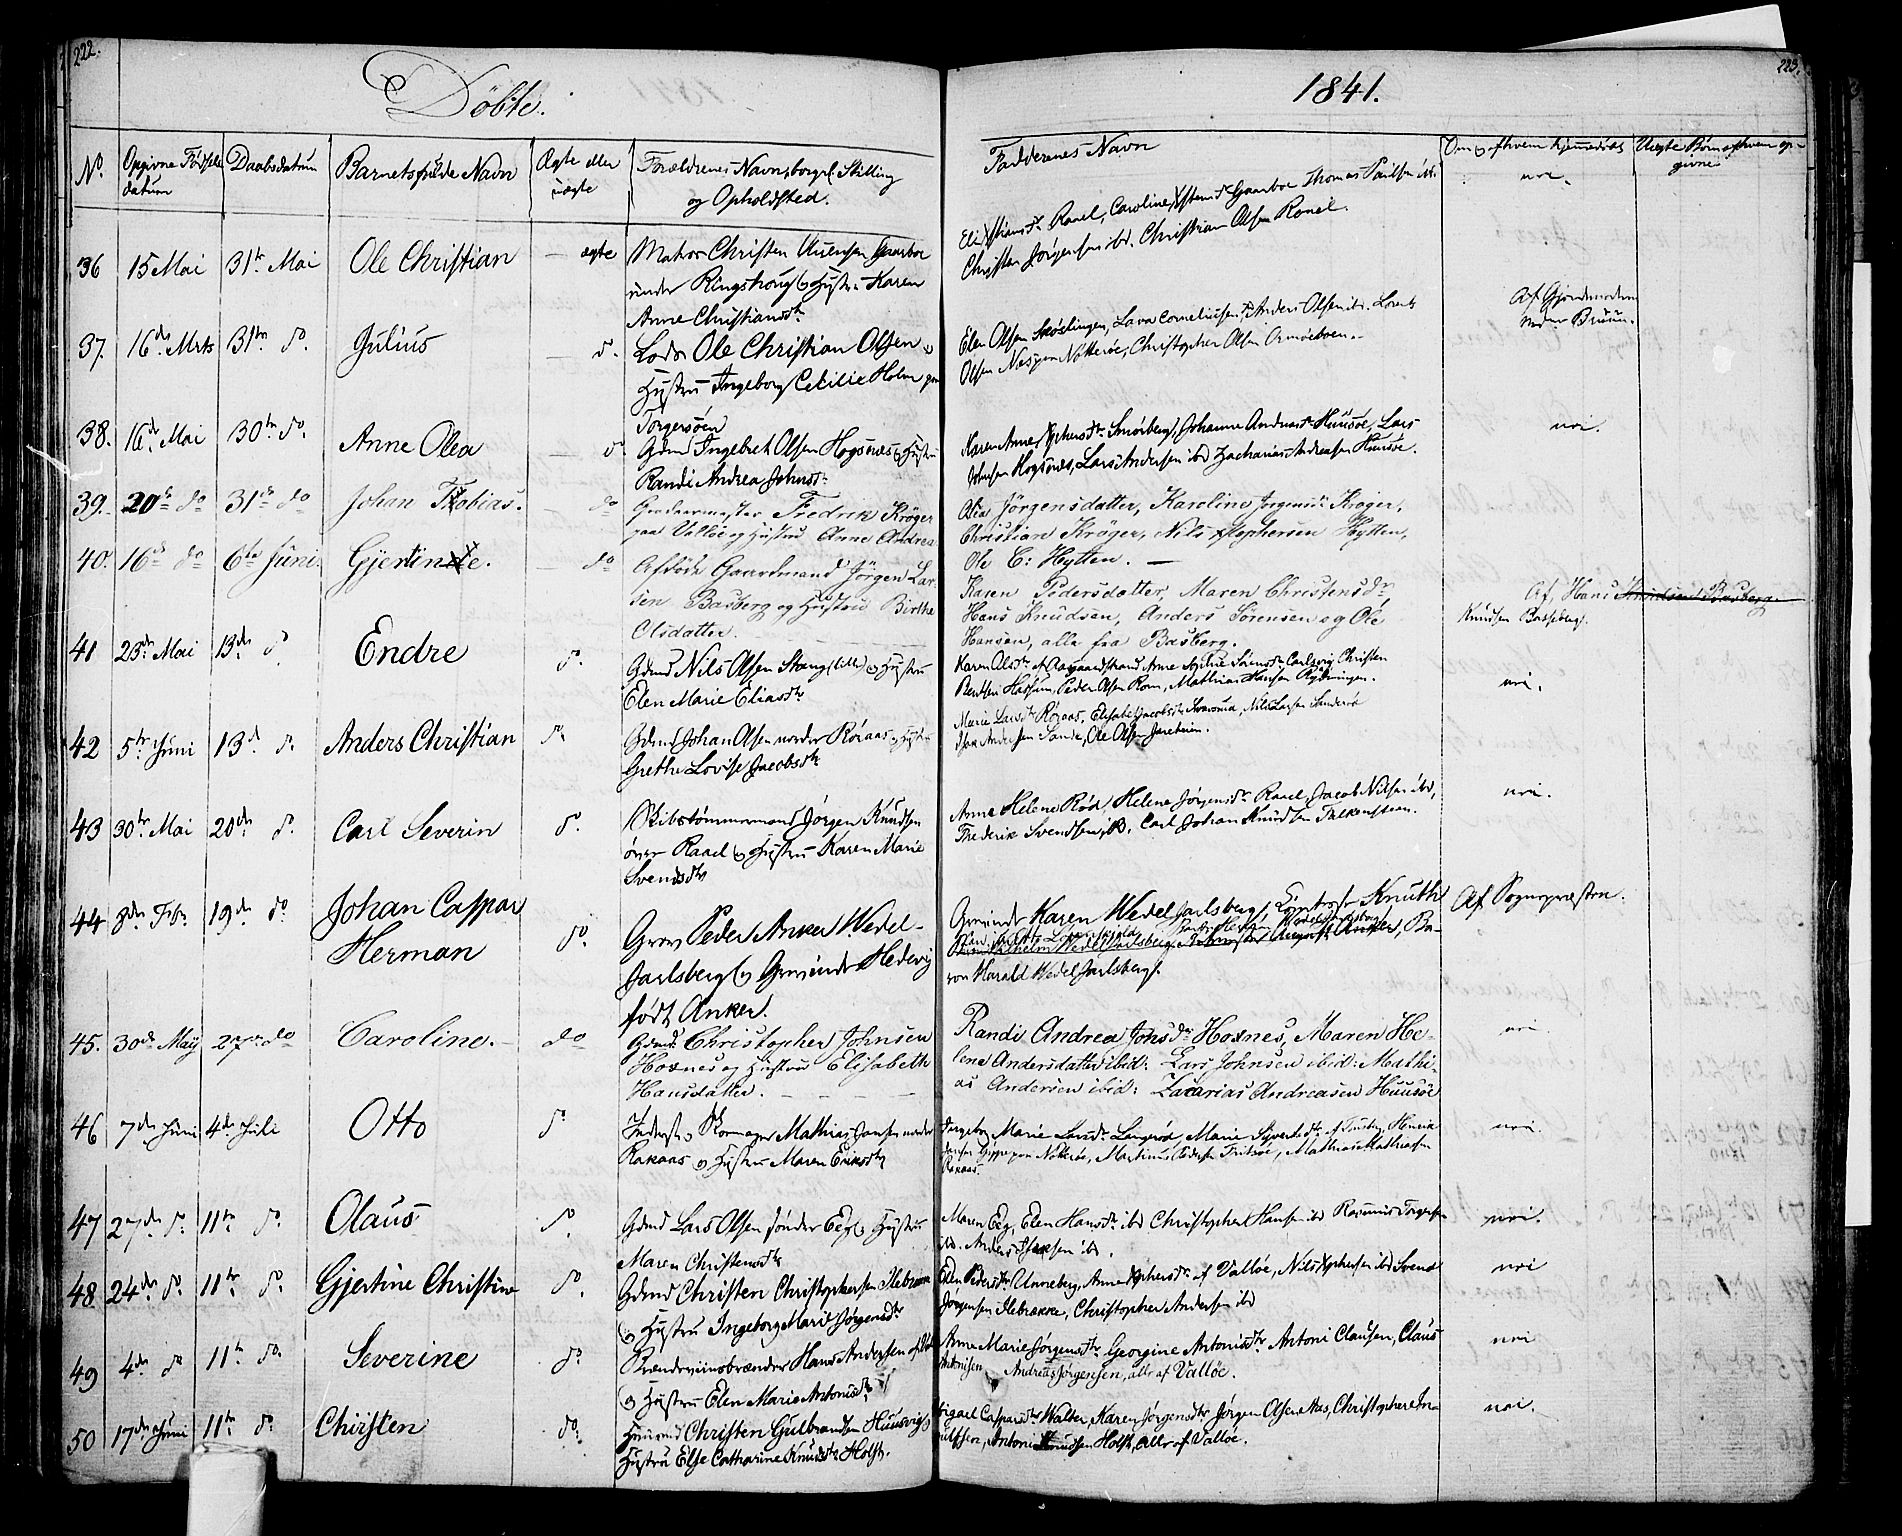 222.
Döbte.
1841.
223.
No.
Opgivne Fødsels
datum
Daabsdatum
Barnets fulde Navn
Ægte eller
uægte
Forældrenes Navn, borgel. Stilling
og Opholdsted.
Faddernes Navn
Om og af hvem hjemmedøbt
Uægte Børn af hvem op-
givne
36 15 Mai 31te Mai Ole Christian — ægte
Matros Christen
under Ringshoug og Hustru Karen
Anne Christiansdtr
Christen Jørgensen ibd. Christian Olsen Ranel.
nei.
37. 16de Mrts 31te do. Julius — do.
Lods Ole Christian Olsen og
Hustru Ingeborg Cecilie Holm paa
Torgersøen
Elen Olsen Lava Corneliusen, Anders Olsen ibd. Lorents
Olsen Nøtterøe, Christopher Olsen
Af Gjordemoderen
Madm Bruun.
38. 16de Mai 30te do. Anne Olea — do.
Gdmd Ingebret Olsen Hogsnes og Hustru
Randi Andrea Johnsdtr
Karen Anne Xphersdtr Smørberg, Johanne Andreasdtr Huusøe, Lars
Johnsen Hogsnes, Lars Andersen ibd Zacharias Andreasen Huusøe.
nei.
39. 20de do 31te do Johan Tobias. — do
Garvermester Fredrik Krøger
paa Valløe og Hustru Anne Andrea
Olea Jörgensdatter, Karoline Jørgensdtr Krøger,
Christian Krøger, Nils Xstophersen Hytten,
Ole C: Hytten. —
40. 16de do 6te Juni Gjertine. — do
Afdöde Gaardmand Jörgen Lar-
sen Basberg og Hustru Birthe
Olsdatter.
Karen Pedersdatter, Maren Christensdr
Hans Knudsen, Anders Sörensen og Ole
Hansen, alle fra Basberg.
Af, Hans Knudsen Basberg
Knudsen Basseberg.
41 23de Mai 13de do Endre do.
Gdmd Nils Olsen Stang lille og Hustru
Elen Marie Eliasdtr
Karen Olsdtr af Aasgaardstrand, Anne Sophie Sörensdtr Carlsvig, Christen
Bentsen Hassum, Peder Olsen Rom, Mathias Hansen Rydningen.
nei.
42 5te Juni 13de do. Anders Christian do.
Gdmd Johan Olsen nordre Röraas og Hustru
Grethe Lovise Jacobsdtr
Marie Larsdtr Röraas, Elisabet Jacobsdtr Nils Larsen
Andersen Sande, Ole Olsen Jareteien.
43 30te Mai 20de do. Carl Severin do.
Skibstömmermand Jörgen Knudsen
övre Raael og Hustru Karen Marie
Svendsdtr
Anne Helene Röd, Helene Jörgensdtr Raael, Jacob Nilsen ibd,
Frederik Svendsen ib. Carl Johan Knudsen Falkensteen.
nei.
44 8de Febr 19de do Johan Caspar
Herman do.
Grev Peder Anker Wedel-
Jarlsberg og Grevinde Hedevig
født Anker.
Grevinde Karen Wedel Jarlsberg, Knuth
August Anker, Ba-
ron Harald Wedel Jarlsberg.
Af Sognepræsten.
45. 30de May 27de do Caroline. — do
Gdmd. Christopher Johnsen
Hoxnes og Hustru Elisabeth
Hansdatter.
Randi Andrea Jonsdr Hoxnes, Maren He-
lene Andersdatter ibid: Lars Johnsen ibid: Mathi-
as Andersen ibid: Zacarias Andreasen Huusöe
nei.
46 7de Juni 4de Juli Otto do
Inderste og Skomager Mathias Jansen nordre
Rakaas og Hustru Maren Eriksdtr
Ingeborg Marie Larsdtr Marie Sivertsdtr af Tønsberg, Henrik
Jansen paa Nøtterøe, Martinus Pedersen Mathias Mathiesen
Rakaas.
nei.
47 27de do. 11te do. Olaus do
Gdmd Lars Olsen söndre Eeg og Hustru
Maren Christensdtr
Maren Eeg, Elen Hansdtr ibd Christopher Hansen ibd Rasmus Torgersen
ibd. Anders Isaksen ibd.
nei.
48 24de do. 11te do. Gjertine Christine do.
Gdmd Christen Christophersen Ilebrække
og Hustru Ingeborg Marie Jørgensdtr
Elen Pedersdtr Unneberg, Anne Xphersdtr af Valløe, Nils Xphersen ibd Svend
Jørgensen Ilebrække, Christopher Andersen ibd
nei
49 4de do 11te do. Severine do.
Brændeviinsbrænder Hans Andersen af
og Hustru Elen Marie Antonisdtr
Anne Marie Jørgensdtr Georgine Antonisdtr Antoni Clausen, Claus
Antonisen Andreas Jørgensen, alle af Valløe.
nei
50 17de Juni 11te do. Christen do.
Huusmd Christen Gulbrandsen Huusvig og
Hustru Else Catharine Knudsdtr Holst.
Caspersdtr Walter, Karen Jørgensdtr Jørgen Olsen Aas, Christopher In-
Antoni Knudsen Holst, alle af Valløe.
nei.